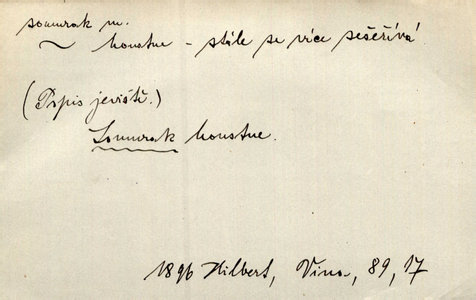 soumrak m.
~ houstne - stále se více sešeřívá
(Popis jeviště.)
Soumrak houstne.
1896 Hilbert, Vina, 89, 17